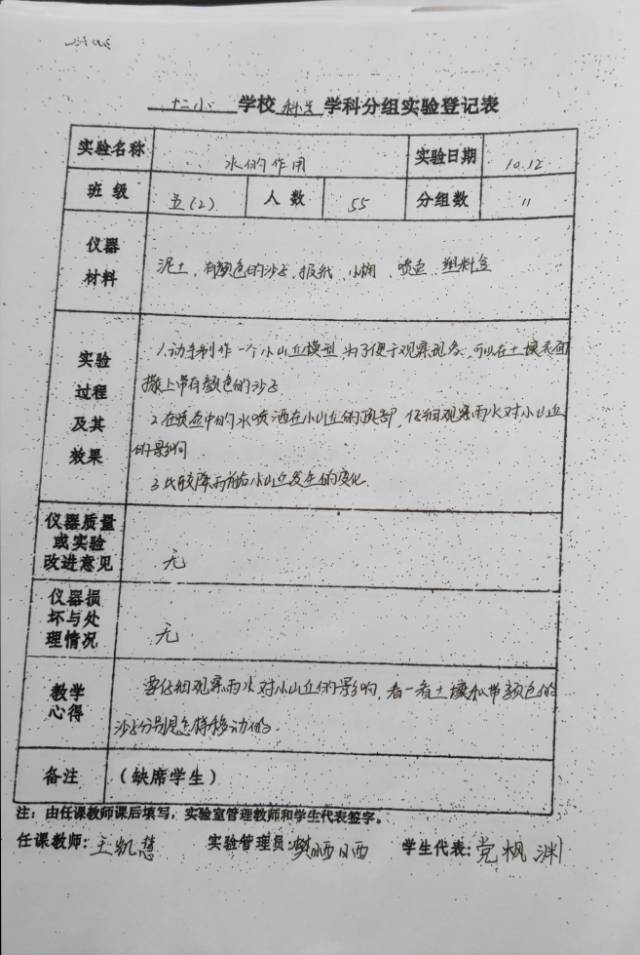 十二小 学校 科学 学科分组实验登记表
实验名称 水的作用 实验日期 10.12
班 级 五(2) 人 数 55 分组数 11
仪器
材料
泥土、有颜色的沙子、报纸、小桶、喷壶、塑料盒
实验
过程
及其
效果
1.动手制作一个小山丘模型,为了便于观察现象,可以在土壤表面
撒上带有颜色的沙子
2.在喷壶中的水喷洒在小山丘的顶部,仔细观察雨水对小山丘
的影响
3.比较降雨前后小山丘发生的变化.
仪器质量
或实验
改进意见
无
仪器损
坏与处
理情况
无
教学
心得
要仔细观察雨水对小山丘的影响,看一看土壤和带颜色的
沙子分别是怎样移动的.
备注 (缺席学生)
注:由任课教师课后填写,实验室管理教师和学生代表签字。
任课教师: 王凯慧 实验管理员: 学生代表: 党枫渊